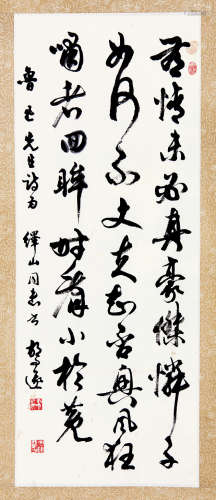 無情未必真豪傑憐子
如何不丈夫知否興風狂
嘯者回眸時看小於菟
魯迅先生詩為 繹山同志书 胡问遂